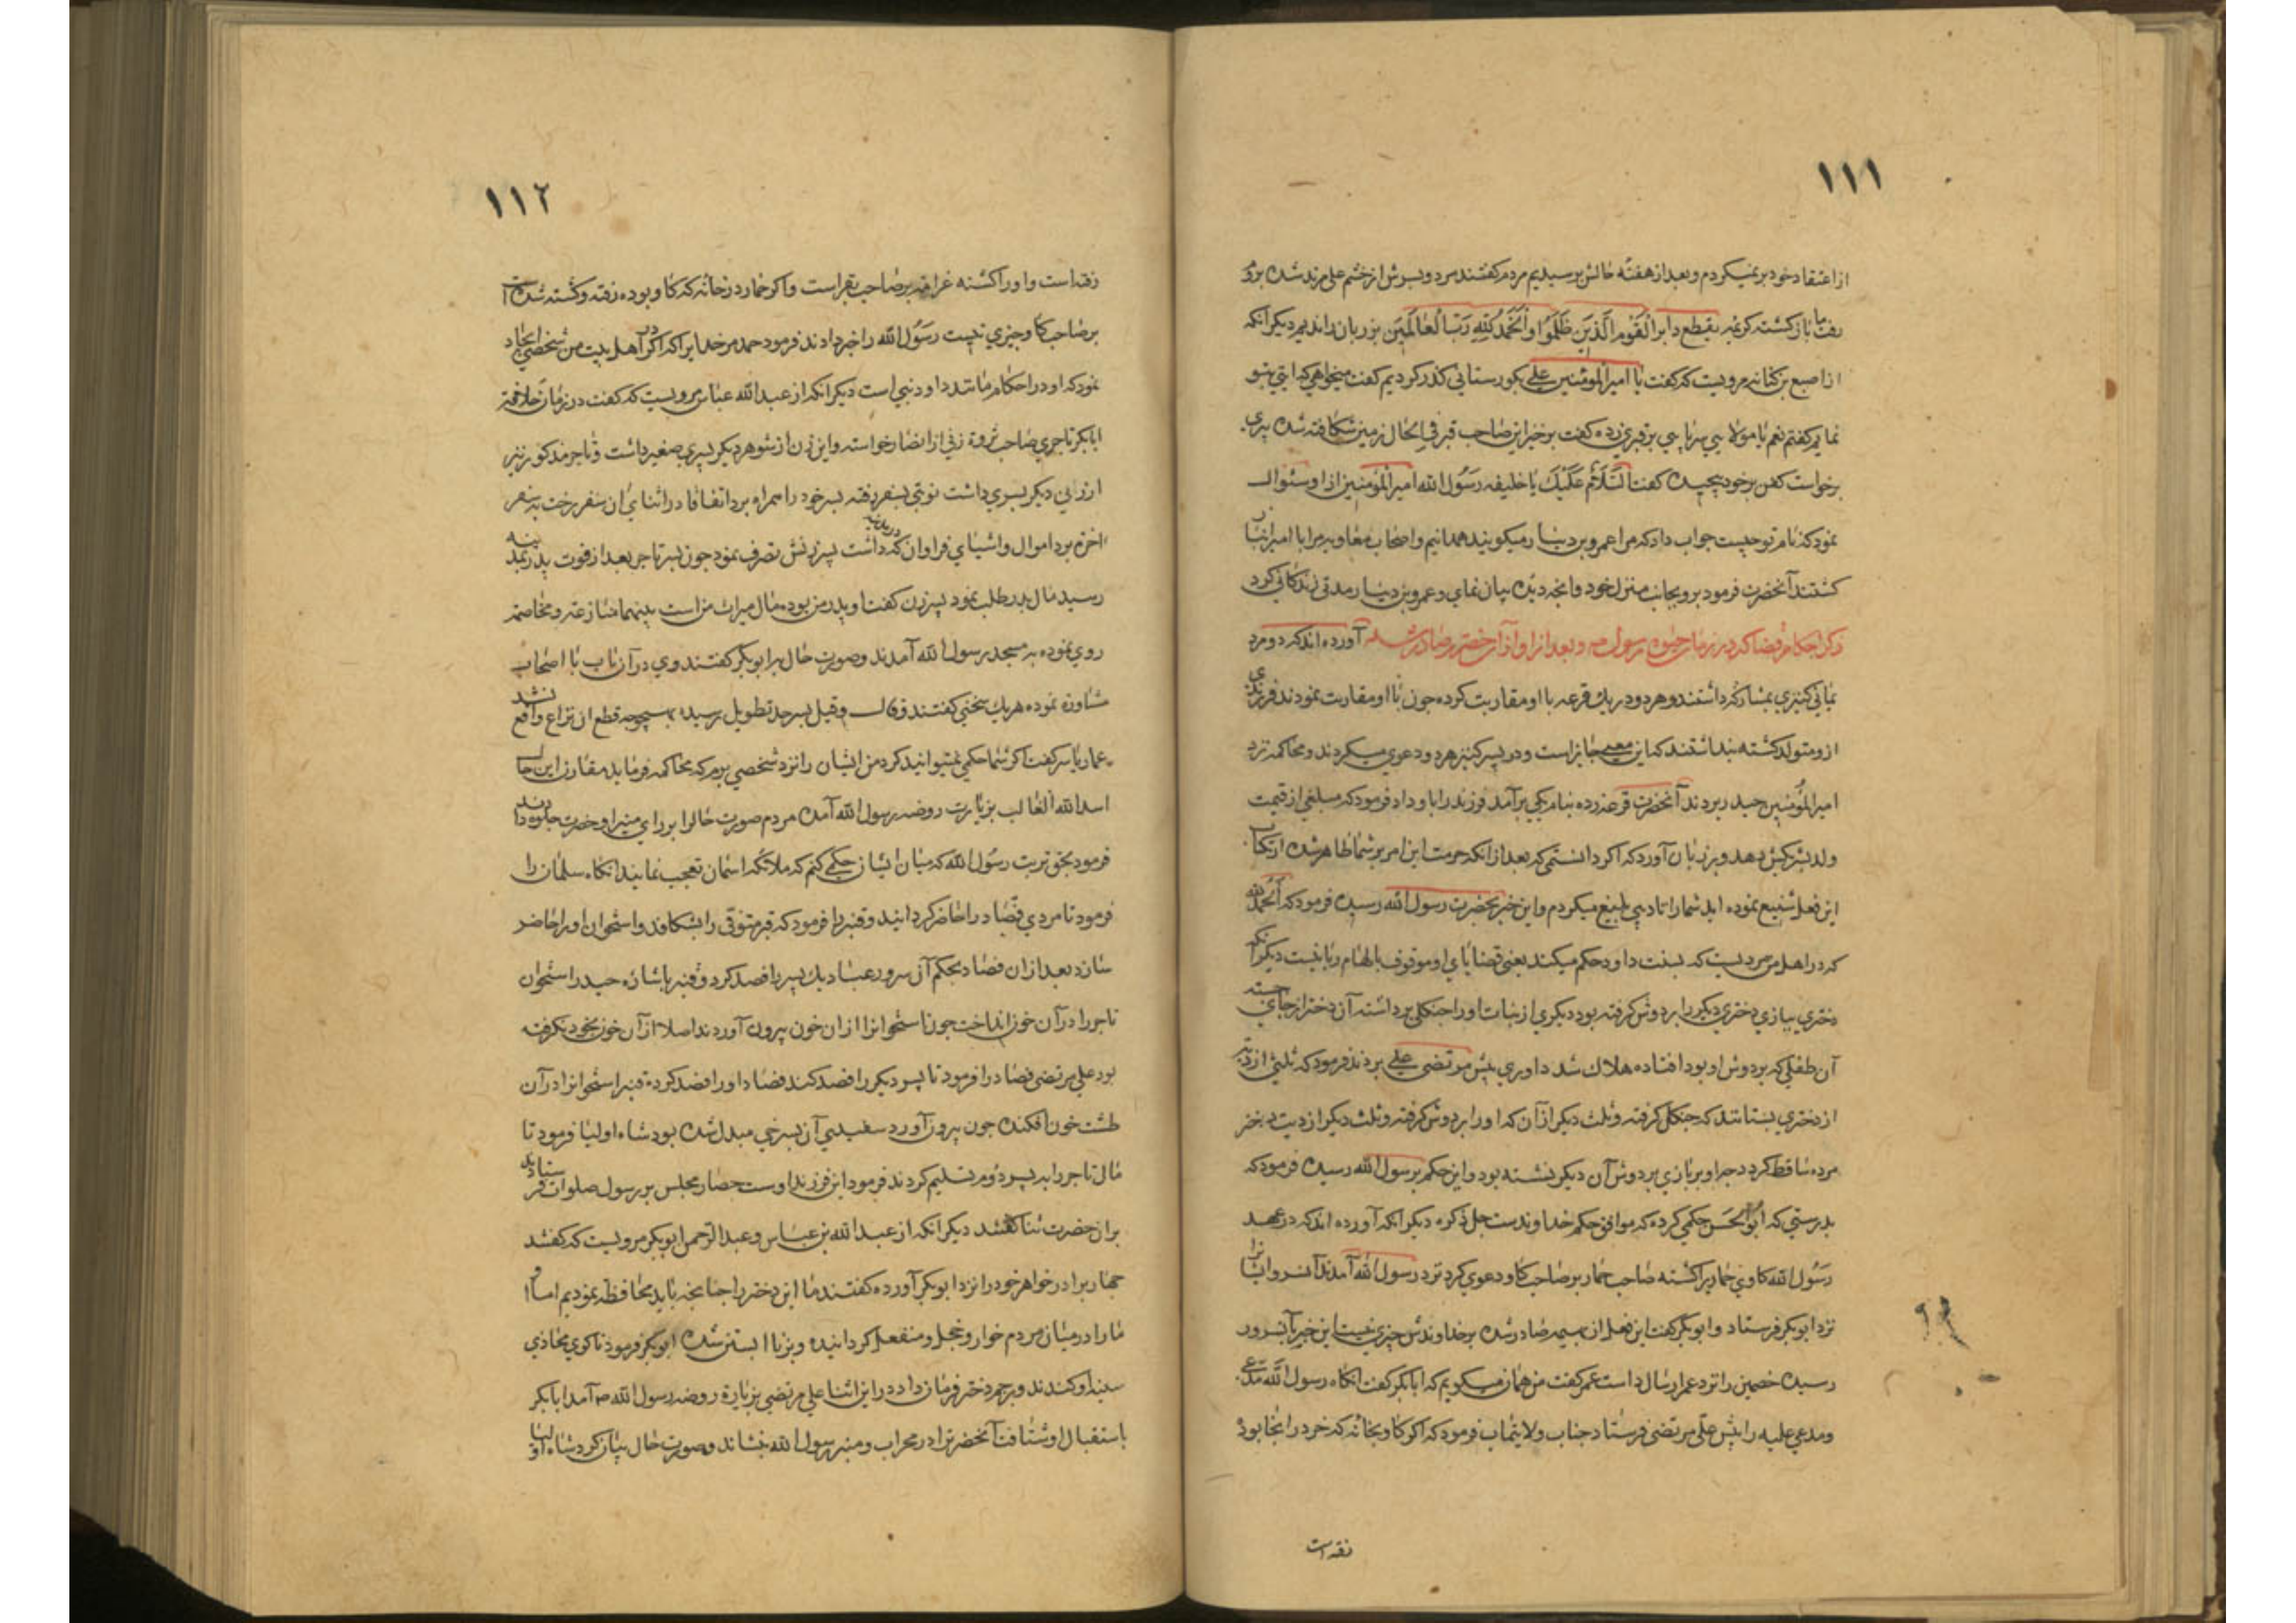 ١١١
از اعتقاد خود بر نمیکردم و بعد از هفتهٔ حالش پرسیدیم مردم کفتند مرد و بسرش از خشم علی مرتد شده برو
رفت ما باز کشته کریمه فقطع دابر القوم الذین ظلموا و الحمد لله رب العالمین بر زبان راندیم دیکر آنکه
از اصبع بن کنانه مرویست که کفت با امیر المؤمنین علی بکورستانی کذر کردیم کفت میخواهی که ایتی بتو
نمایم کفتم نعم یا مولای پس پایی بر قبری زده کفت برخیز این صاحب قبر فی الحال زمین شکافته شده پیری
برخواست کفن برخود پیچیده کفت السلام علیک یا خلیفه رسول الله امیر المؤمنین از او سئوال
نمود که نام تو چیست جواب داد که مرا عمرو بن دینار میکویند همدانیم و اصحاب معاویه مرا با امیر انبار
کشتند آنحضرت فرمود برو بجانب منزل خود و انجه دیده بیان نمای و عمرو بن دینار مدتی زندکانی کرد
ذکر احکام قضا که در زمان حیوة رسول ص و بعد از او از آن حضرت صادر شده آورده اند که دو مرد
یمانی کنیزی بمشارکه داشتند و هر دو در یک قرعه با او مقاربت کرده جون با او مقاربت نمودند فرزندی
ازو متولد کشته پنداشتند که این معنی جایز است و در پسر کنیز هر دو دعوی میکردند و محاکمه نزد
امیر المؤمنین حیدر بردند آنحضرت قرعه زده بنام یکی برآمد فرزند را باو داد فرمود که مبلغی از قیمت
ولد بشریکش دهد و بر زبان آورد که اکر دانستمی که بعد از آنکه حرمت این امر بر شما ظاهر شده ارتکاب
این فعل شنیع نموده اید شما را تادیبی بلیغ میکردم و این خبر بحضرت رسول الله رسیده فرمود که الحمد لله
که در اهل من مردیست که بسنت داود حکم میکند یعنی قضایای او موقوف بالهام ربانیست دیکر آنکه
دختری ببازی دختری دیکر را بر دوش کرفته بود دیکری از بنات او را جنکلی برداشته آن دختر از جای جسته
آن طفلی که بر دوش او بود افتاده هلاک شد داوری پیش مرتضی علی بردند فرمود که ثلثی از دیت
از دختری بستانند که جنکل کرفته و ثلث دیکر از آن که او را بر دوش کرفته و ثلث دیکر از دیت دختر
مرده ساقط کردد جرا که ببازی بر دوش آن دیکر نشسته بود و این حکم برسول الله رسیده فرمود که
بدرستی که ابو الحسن حکمی کرده که موافق حکم خداوندست جل ذکره دیکر آنکه آورده اند که در عهد
رسول الله کاوی حماریرا کشته صاحب حمار بر صاحب کاو دعوی کرد نزد رسول الله آمدند آنسرور ایشانرا
نزد ابو بکر فرستاد و ابو بکر کفت این فعل از بهیمه صادر شده بر خداوندش جیزی نیست این خبر بآنسرور
رسیده خصمین را نزد عمر ارسال داشت عمر کفت من همان میکویم که ابابکر کفت انکاه رسول الله مدعی
و مدعی علیه را پیش علی مرتضی فرستاد جناب ولایتماب فرمود که اکر کاو بخانه که خر در انجا بود
رفته است
١١٢
رفته است و او را کشته غرامه بر صاحب بقر است و اکر حمار در خانه که کاو بوده رفته و کشته شده است
بر صاحب کاو جیزی نیست رسول الله را خبر دادند فرمود حمد مر خدایرا که در اهل بیت من شخصی ایجاد
نمود که او در احکام مانند داود نبی است دیکر انکه از عبد الله عباس مرویست که کفت در زمان خلافة
ابابکر تاجری صاحب ثروة زنی از انصار خواسته و این زن از شوهر دیکر پسری صغیر داشت و تاجر مذکور نیز
از زنی دیکر پسری داشت نوبتی بسفر رفته پسر خود را همراه برد اتفاقا در اثنای آن سفر رخت به سفر
اخرة برد اموال و اشیای فراوان که داشت پسر زنش تصرف نمود جون پسر تاجر بعد از فوت پدر بمدینه
رسید مال پدر طلب نمود پسر زن کفت او پدر من بوده مال میراث من است بینهما منازعه و مخاصمه
روی نموده به مسجد رسول الله آمدند و صورت حال برابو بکر کفتند وی در آن باب با اصحاب
مشاوره نموده هر یک سخنی کفتند و قال و قیل بسرحد تطویل رسیده بهیچوجه قطع ان نزاع واقع نشد
عمار یاسر کفت اکر شما حکمی نمیتوانید کرد من ایشان را نزد شخصی برم که محاکمه فرماید مقارن این حال
اسد الله الغالب بزیارت روضه رسول الله آمده مردم صورت حال را بر رای منیر او حضرت جلوه دادند
فرمود بحق تربت رسول الله که میان ایشان حکمی کنم که ملائکه اسمان تعجب نمایند انکاه سلمان را
فرمود تا مردی فصاد را حاضر کردانید و قنبر را فرمود که قبر متوفی را بشکافد و استخوان او را حاضر
سازد بعد از ان فصاد بحکم آن سرور عباد یک پسر را فصد کرد و قنبر باشاره حیدر استخوان
تاجر را در آن خون انداخت جون استخوانرا از ان خون بیرون آوردند اصلا از آن خون بخود نکرفته
بود علی مرتضی فصاد را فرمود تا پسر دیکر را فصد کند فصاد او را فصد کرده قنبر استخوانرا در آن
طشت خون افکنده جون بیرون آورد سفیدیی آن بسرخی مبدل شده بود شاه اولیا فرمود تا
مال تاجر را به پسر دوم تسلیم کردند فرمود این فرزند اوست حضار مجلس بر رسول صلوات فرستادند
بران حضرت ثنا کفتند دیکر انکه از عبد الله بن عباس و عبد الرحمن ابو بکر مرویست که کفتند
جهار برادر خواهر خود را نزد ابو بکر آورده کفتند ما این دختر را جنانجه باید محافظه نمودیم اما او
ما را در میان مردم خوار و خجل و منفعل کردانیده و بزنا ابستن شده ابو بکر فرمود تا کوی محاذی
سینه او کندند و برجم دختر فرمان داد در این اثنا علی مرتضی بزیارة روضه رسول الله ص آمد ابابکر
باستقبال او شتافت آنحضرترا در محراب و منبر رسول الله بنشاند و صورت حال بیان کرد شاه اولیا